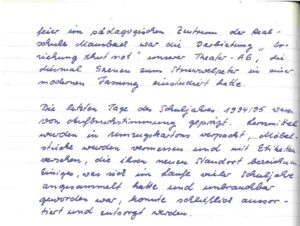 feier im pädagogischen Zentrum der Real-
schule Maubach war die Darbietung "Er-
ziehung thut not" unserer Theater-AG, die
diesmal Szenen zum Struwwelpeter in einer
modernen Fassung einstudiert hatte.
Die letzten Tage des Schuljahres 1994/95 waren
von Aufbruchstimmung geprägt. Lernmittel
wurden in Umzugskartons verpackt, Möbel-
stücke wurden vermessen und mit Etiketten
versehen, die ihren neuen Standort bezeichnen.
Einiges, was sich im Laufe vieler Schuljahre
angesammelt hatte und unbrauchbar
geworden war, konnte schließlich aussor-
tiert und entsorgt werden.